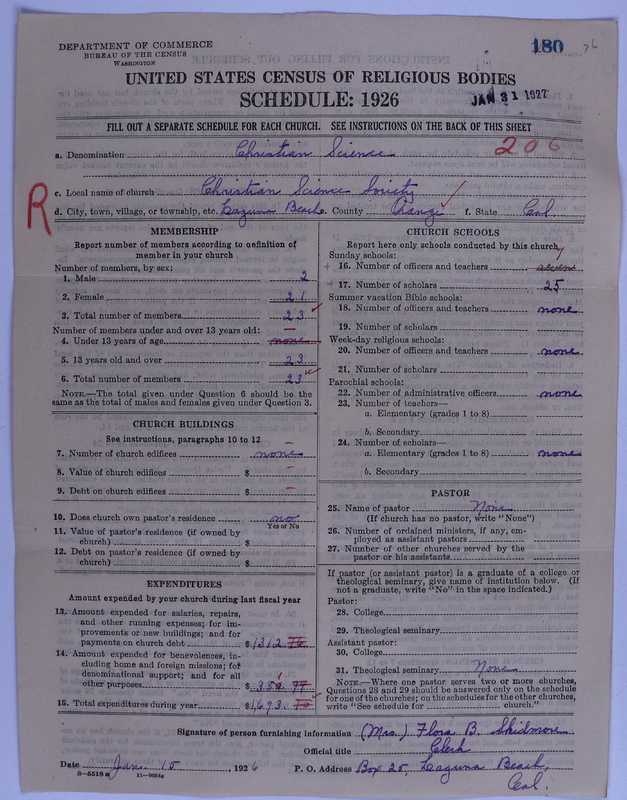 DEPARTMENT OF COMMERCE
BUREAU OF THE CENSUS
WASHINGTON
180
UNITED STATES CENSUS OF RELIGIOUS BODIES
SCHEDULE: 1926
JAN 31 1927
FILL OUT A SEPARATE SCHEDULE FOR EACH CHURCH. SEE INSTRUCTIONS ON THE BACK OF THIS SHEET
a. Denomination Christian Science
206
c. Local name of church Christian Science Society
R
d. City, town, village, or township, etc. Laguna Beach e. County Orange f. State Cal
MEMBERSHIP
Report number of members according to definition of
member in your church
Number of members, by sex:
1. Male 2
2. Female 21
3. Total number of members 23
Number of members under and over 13 years old:
4. Under 13 years of age none
5. 13 years old and over 23
6. Total number of members 23
NOTE.—The total given under Question 6 should be
same as the total of males and females given under Question 3.
CHURCH BUILDINGS
See instructions, paragraphs 10 to 12
7. Number of church edifices none
8. Value of church edifices $
9. Debt on church edifices $
10. Does church own pastor's residence no
Yes or No
11. Value of pastor's residence (if owned by
church) $
12. Debt on pastor's residence (if owned by
church) $
EXPENDITURES
Amount expended by your church during last fiscal year
13. Amount expended for salaries, repairs,
and other running expenses; for im-
provements or new buildings; and for
payments on church debt $1312
14. Amount expended for benevolences, in-
cluding home and foreign missions; for
denominational support; and for all
other purposes
15. Total expenditures during year $1,693
CHURCH SCHOOLS
Report here only schools conducted by this church
Sunday schools:
16. Number of officers and teachers 7
17. Number of scholars 25
Summer vacation Bible schools:
18. Number of officers and teachers none
19. Number of scholars
Week-day religious schools:
20. Number of officers and teachers none
21. Number of scholars
Parochial schools:
22. Number of administrative officers none
23. Number of teachers—
a. Elementary (grades 1 to 8)
b. Secondary
24. Number of scholars—
a. Elementary (grades 1 to 8) none
b. Secondary
PASTOR
25. Name of pastor None
(If church has no pastor, write "None")
26. Number of ordained ministers, if any, em-
ployed as assistant pastors
27. Number of other churches served by the
pastor or his assistants
If pastor (or assistant pastor) is a graduate of a college or
theological seminary, give name of institution below. (If
not a graduate, write "No" in the space indicated.)
Pastor:
28. College
29. Theological seminary
Assistant pastor:
30. College
31. Theological seminary None
NOTE.—Where one pastor serves two or more churches,
Questions 28 and 29 should be answered only on the schedule
for one of the churches; on the schedules for the other churches,
write "See schedule for church."
Signature of person furnishing information (Mrs.) Flora B. Skidmore
Official title Clerk
Date Jan. 15, 1926 P. O. Address Box 25, Laguna Beach,
Cal.
8—5518a 11—9064a